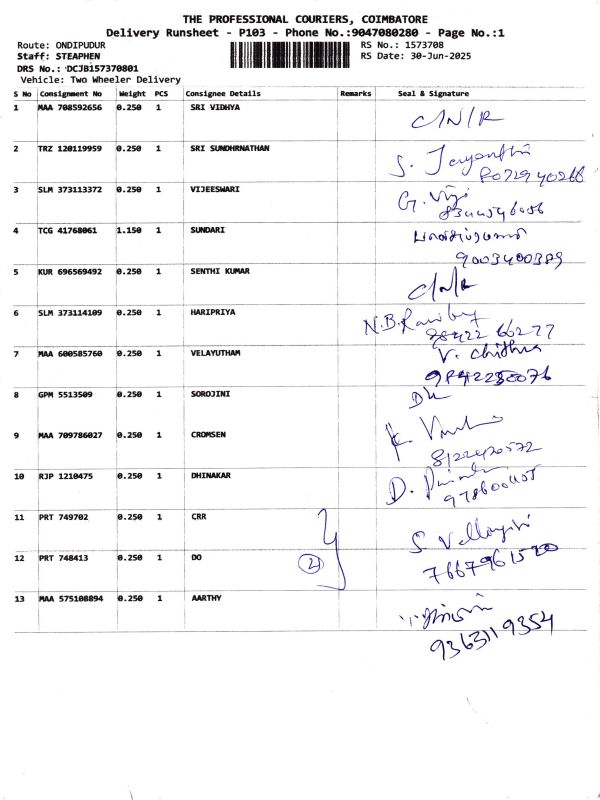 THE PROFESSIONAL COURIERS, COIMBATORE
Delivery Runsheet - P103 - Phone No.:9047080280 - Page No.:1
Route: ONDIPUDUR RS No.: 1573708
Staff: STEAPHEN RS Date: 30-Jun-2025
DRS No.: DCJB157370801
Vehicle: Two Wheeler Delivery
S No Consignment No Weight PCS Consignee Details Remarks Seal & Signature
1 MAA 708592656 0.250 1 SRI VIDHYA C/N/R
2 TRZ 120119959 0.250 1 SRI SUNDHRNATHAN S. Jayanthi
8072940268
3 SLM 373113372 0.250 1 VIJEESWARI G. Viji
4 TCG 41768061 1.150 1 SUNDARI
9003400389
5 KUR 696569492 0.250 1 SENTHI KUMAR C/N/R
6 SLM 373114109 0.250 1 HARIPRIYA N.B.
98422 66277
7 MAA 600585760 0.250 1 VELAYUTHAM V. Chithra
9842280076
8 GPM 5513509 0.250 1 SOROJINI
9 MAA 709786027 0.250 1 CROMSEN
8122420572
10 RJP 1210475 0.250 1 DHINAKAR D.
11 PRT 749702 0.250 1 CRR S
12 PRT 748413 0.250 1 DO 2
7667961520
13 MAA 575108894 0.250 1 AARTHY
9363119354